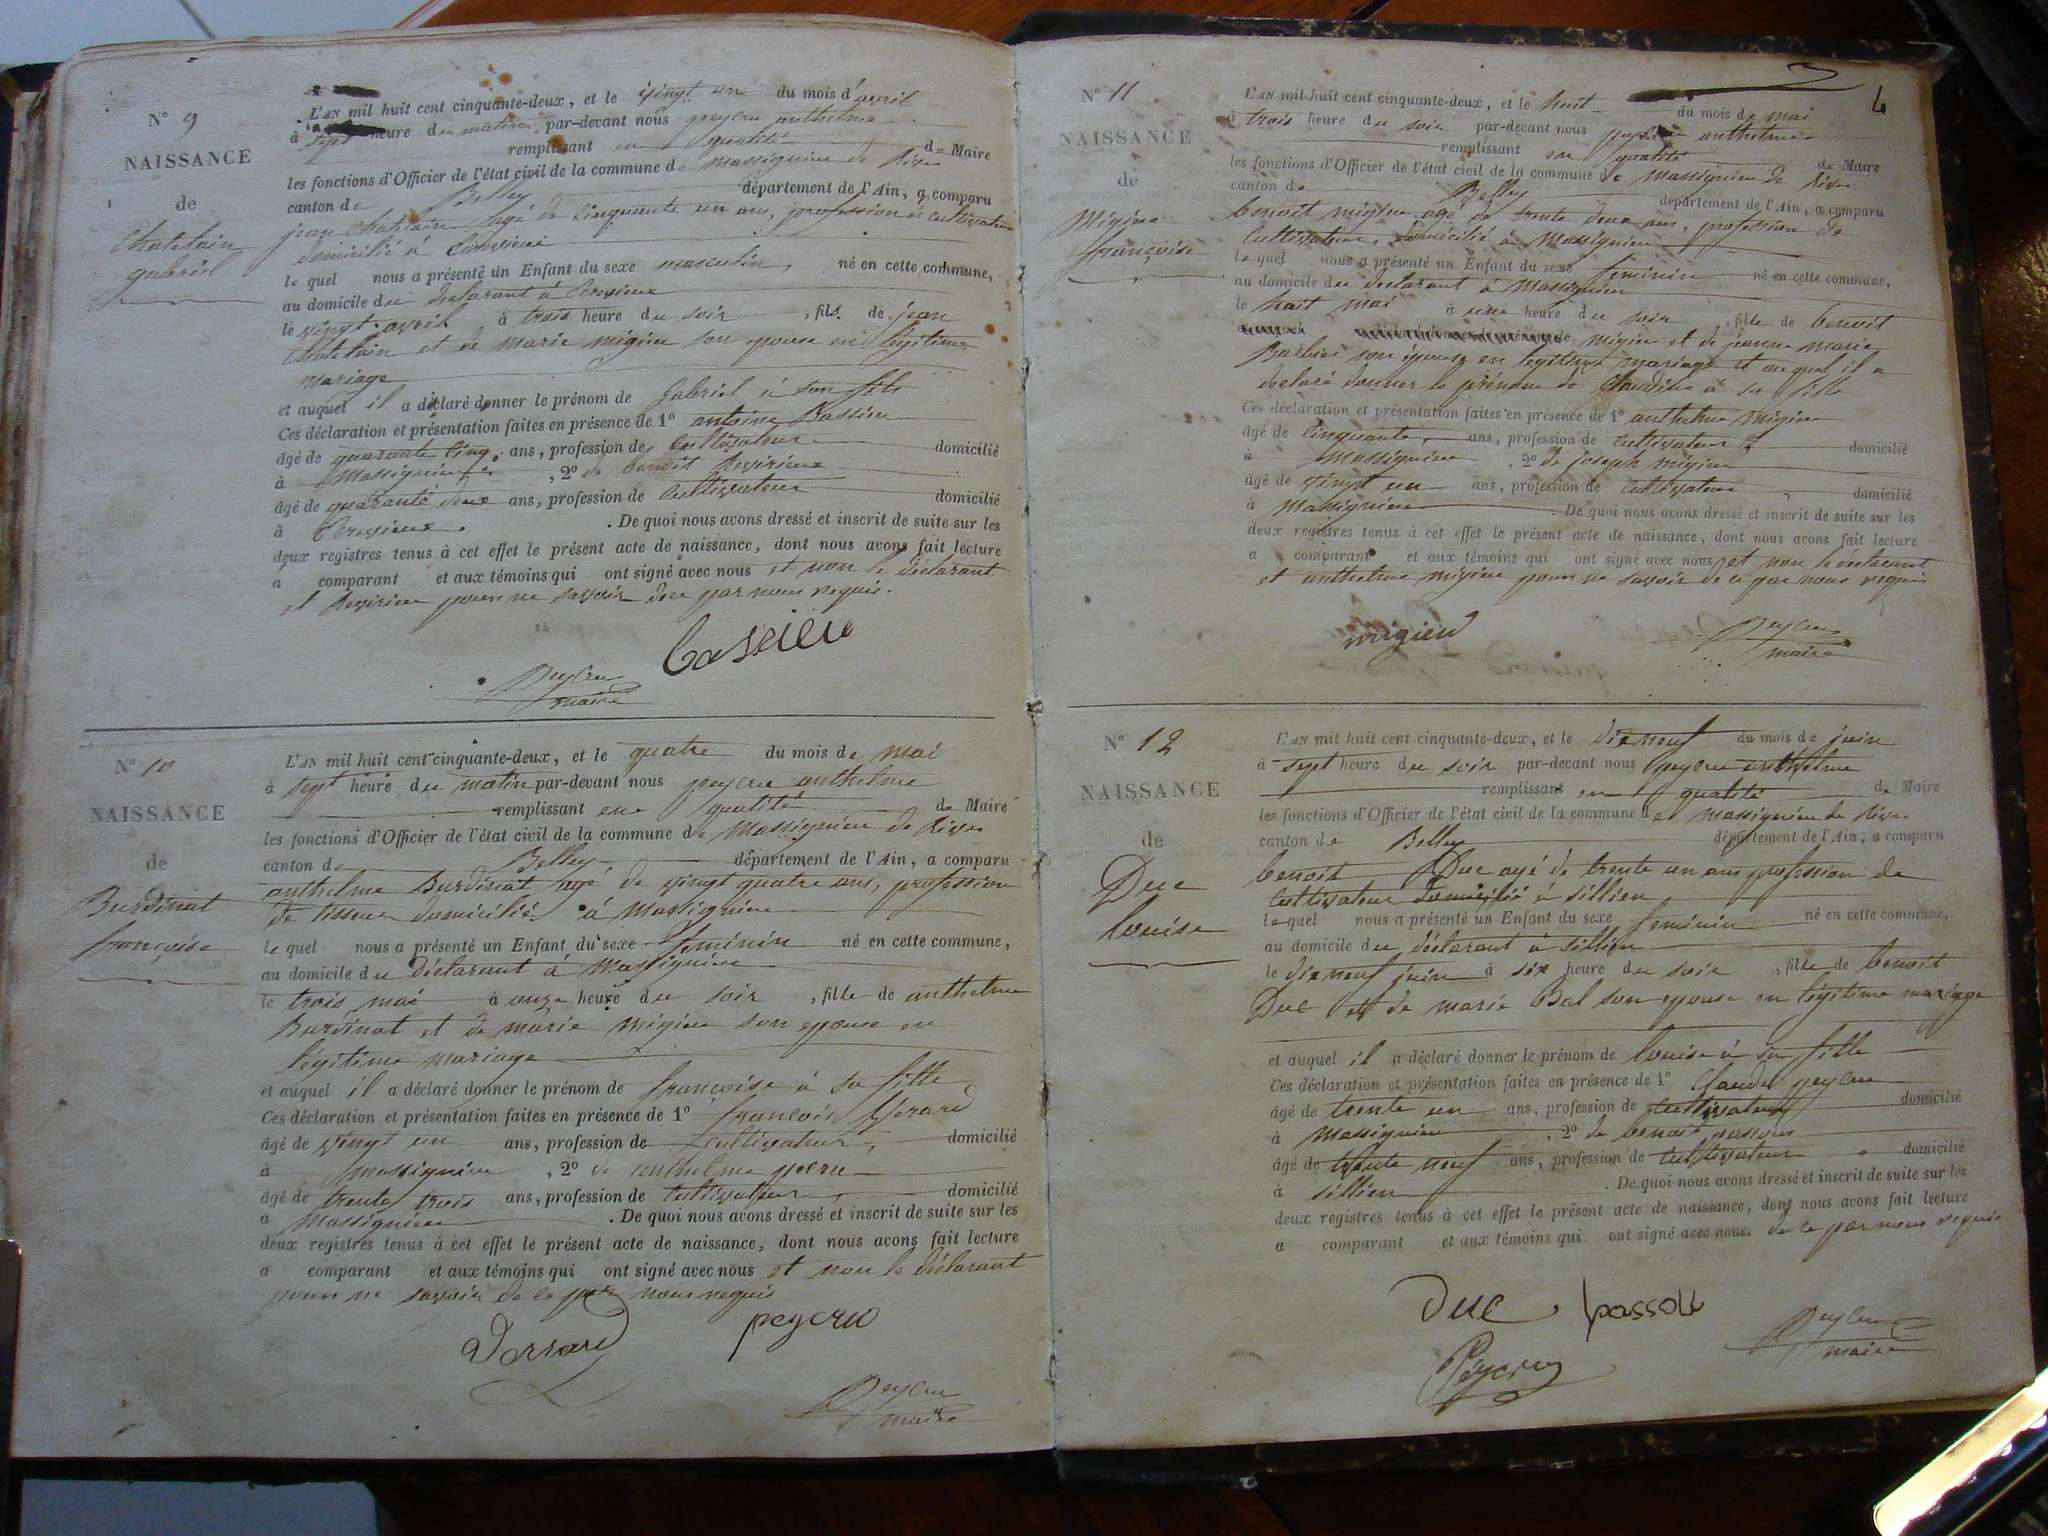 N° 9
NAISSANCE
de
Chatelain
gabriel
L'AN mil huit cent cinquante-deux, et le vingt un du mois d'avril
à sept heure du matin par-devant nous peycru anthelme
remplissant en qualité de Maire
les fonctions d'Officier de l'état civil de la commune de Massignieu de Rives
canton de Belley département de l'Ain, a comparu
jean Chatelain agé de cinquante un ans, profession de cultivateur
domicilié à
le quel nous a présenté un Enfant du sexe masculin, né en cette commune,
au domicile du déclarant à
le vingt avril à trois heure du soir , fils de jean
Chatelain et de marie migieu son epouse en légitime
mariage
et auquel il a déclaré donner le prénom de Gabriel à son fils
Ces déclaration et présentation faites en présence de 1° antoine Bassieu
âgé de quarante cinq, ans, profession de cultivateur domicilié
à Massignieu , 2° de benoit
âgé de quarante deux ans, profession de cultivateur domicilié
à . De quoi nous avons dressé et inscrit de suite sur les
deux registres tenus à cet effet le présent acte de naissance, dont nous avons fait lecture
a comparant et aux témoins qui ont signé avec nous et non le déclarant
et pour ne savoir de ce par nous requis.
Bassieu
Peycru
maire
N° 10
NAISSANCE
de
Burdinat
françoise
L'AN mil huit cent cinquante-deux, et le quatre du mois de mai
à sept heure du matin par-devant nous peycru anthelme
remplissant en qualité de Maire
les fonctions d'Officier de l'état civil de la commune de Massignieu de Rives
canton de Belley département de l'Ain, a comparu
anthelme Burdinat agé de vingt quatre ans, profession
de tisseur domicilié à Massignieu
le quel nous a présenté un Enfant du sexe feminin né en cette commune,
au domicile du déclarant à Massignieu
le trois mai à onze heure du soir , fille de anthelme
Burdinat et de marie migieu son epouse en
légitime mariage
et auquel il a déclaré donner le prénom de françoise à sa fille
Ces déclaration et présentation faites en présence de 1° françois Gerard
âgé de vingt un ans, profession de cultivateur, domicilié
à Massignieu , 2° de anthelme pecru
âgé de trente trois ans, profession de cultivateur, domicilié
a Massignieu . De quoi nous avons dressé et inscrit de suite sur les
deux registres tenus à cet effet le présent acte de naissance, dont nous avons fait lecture
a comparant et aux témoins qui ont signé avec nous et non le déclarant
pour ne savoir de ce par nous requis
peycru
Peycru
maire
N° 11
NAISSANCE
de
Migieu
françoise
L'AN mil huit cent cinquante-deux, et le huit du mois de mai
à trois heure du soir par-devant nous peycru anthelme
remplissant en qualité de Maire
les fonctions d'Officier de l'état civil de la commune de Massignieu de Rives
canton de Belley département de l'Ain, a comparu
benoit migieu agé de trente deux ans, profession de
cultivateur, domicilié à Massignieu
le quel nous a présenté un Enfant du sexe feminin né en cette commune,
au domicile du déclarant à Massignieu
le huit mai à une heure du soir , fille de benoit
migieu et de jeanne marie
Barbier son epouse en legitime mariage et auquel il a
declaré donner le prénom de Claudine à sa fille
Ces déclaration et présentation faites en présence de 1° anthelme Migieu
âgé de cinquante, ans, profession de cultivateur, domicilié
à Massignieu , 2° de joseph migieu
âgé de vingt un ans, profession de cultivateur, domicilié
à Massignieu . De quoi nous avons dressé et inscrit de suite sur les
deux registres tenus à cet effet le présent acte de naissance, dont nous avons fait lecture
a comparant et aux témoins qui ont signé avec nous, et non le déclarant
et anthelme migieu pour ne savoir de ce par nous requis
migieu
Peycru
maire
N° 12
NAISSANCE
de
Duc
louise
L'AN mil huit cent cinquante-deux, et le dix neuf du mois de juin
à sept heure du soir par-devant nous peycru anthelme
remplissant en qualité de Maire
les fonctions d'Officier de l'état civil de la commune de Massignieu de Rives
canton de Belley département de l'Ain, a comparu
benoit Duc agé de trente un ans profession de
cultivateur domicilié à sillieu
le quel nous a présenté un Enfant du sexe feminin né en cette commune,
au domicile du déclarant à sillieu
le dix neuf juin à six heure du soir , fille de benoit
Duc et de marie Bal son epouse en légitime mariage
et auquel il a déclaré donner le prénom de louise à sa fille
Ces déclaration et présentation faites en présence de 1° Claude peycru
âgé de trente un ans, profession de cultivateur domicilié
à Massignieu , 2° de benoit passou
âgé de trente neuf ans, profession de cultivateur domicilié
à sillieu . De quoi nous avons dressé et inscrit de suite sur les
deux registres tenus à cet effet le présent acte de naissance, dont nous avons fait lecture
a comparant et aux témoins qui ont signé avec nous. de ce par nous requis
Duc passou
Peycru
Peycru
maire